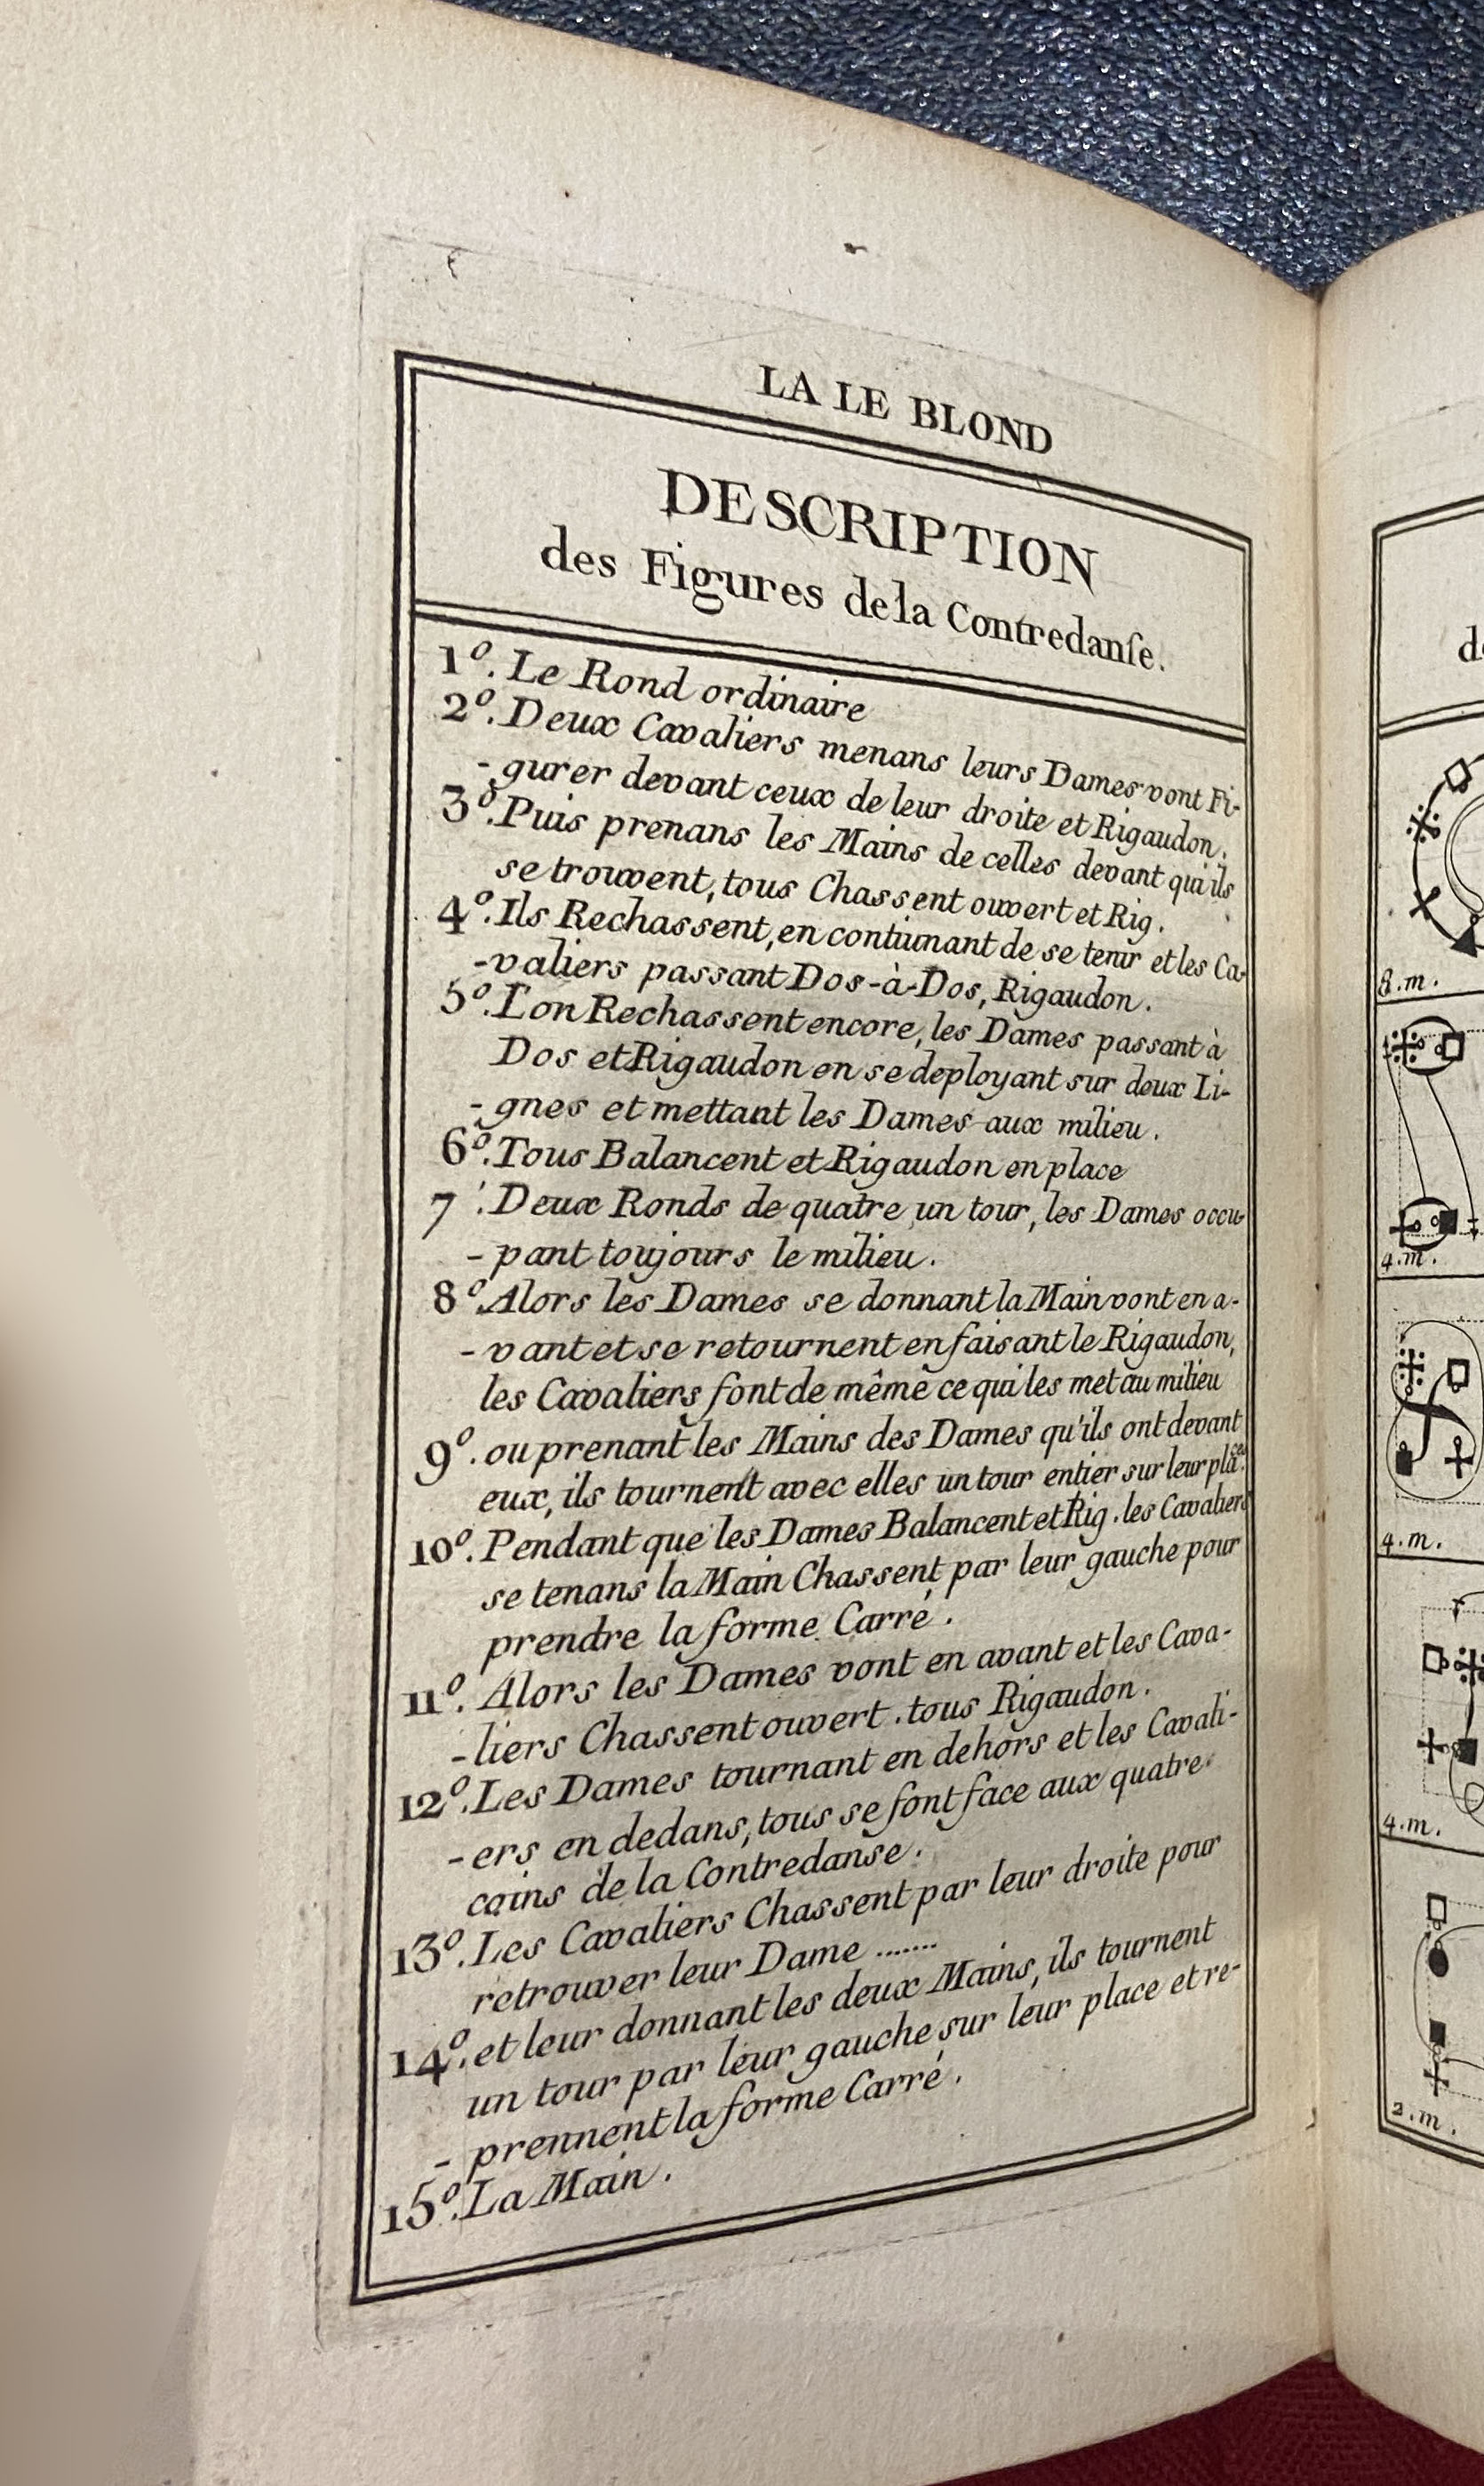 LA LE BLOND
DESCRIPTION
des Figures de la Contredanſe.
1.º Le Rond ordinaire
2.º Deux Cavaliers menans leurs Dames vont Fi-
-gurer devant ceux de leur droite et Rigaudon.
3.º Puis prenans les Mains de celles devant qui ils
se trouvent, tous Chassent ouvert et Rig.
4.º Ils Rechassent, en continuant de se tenir et les Ca-
-valiers passant Dos-à-Dos, Rigaudon.
5.º L'on Rechassent encore, les Dames passant à
Dos et Rigaudon en se deployant sur deux Li-
-gnes et mettant les Dames aux milieu.
6.º Tous Balancent et Rigaudon en place
7. Deux Ronds de quatre un tour, les Dames occu-
-pant toujours le milieu.
8.º Alors les Dames se donnant la Main vont en a-
-vant et se retournent en faisant le Rigaudon,
les Cavaliers font de même ce qui les met au milieu
9.º ou prenant les Mains des Dames qu'ils ont devant
eux, ils tournent avec elles un tour entier sur leur places.
10.º Pendant que les Dames Balancent et Rig. les Cavaliers
se tenans la Main Chassent par leur gauche pour
prendre la forme Carré.
11.º Alors les Dames vont en avant et les Cava-
-liers Chassent ouvert. tous Rigaudon.
12.º Les Dames tournant en dehors et les Cavali-
-ers en dedans, tous se font face aux quatre
coins de la Contredanse.
13.º Les Cavaliers Chassent par leur droite pour
retrouver leur Dame .......
14.º et leur donnant les deux Mains, ils tournent
un tour par leur gauche sur leur place et re-
- prennent la forme Carré.
15.º La Main.
8.m.
4.m.
4.m.
4.m.
2.m.